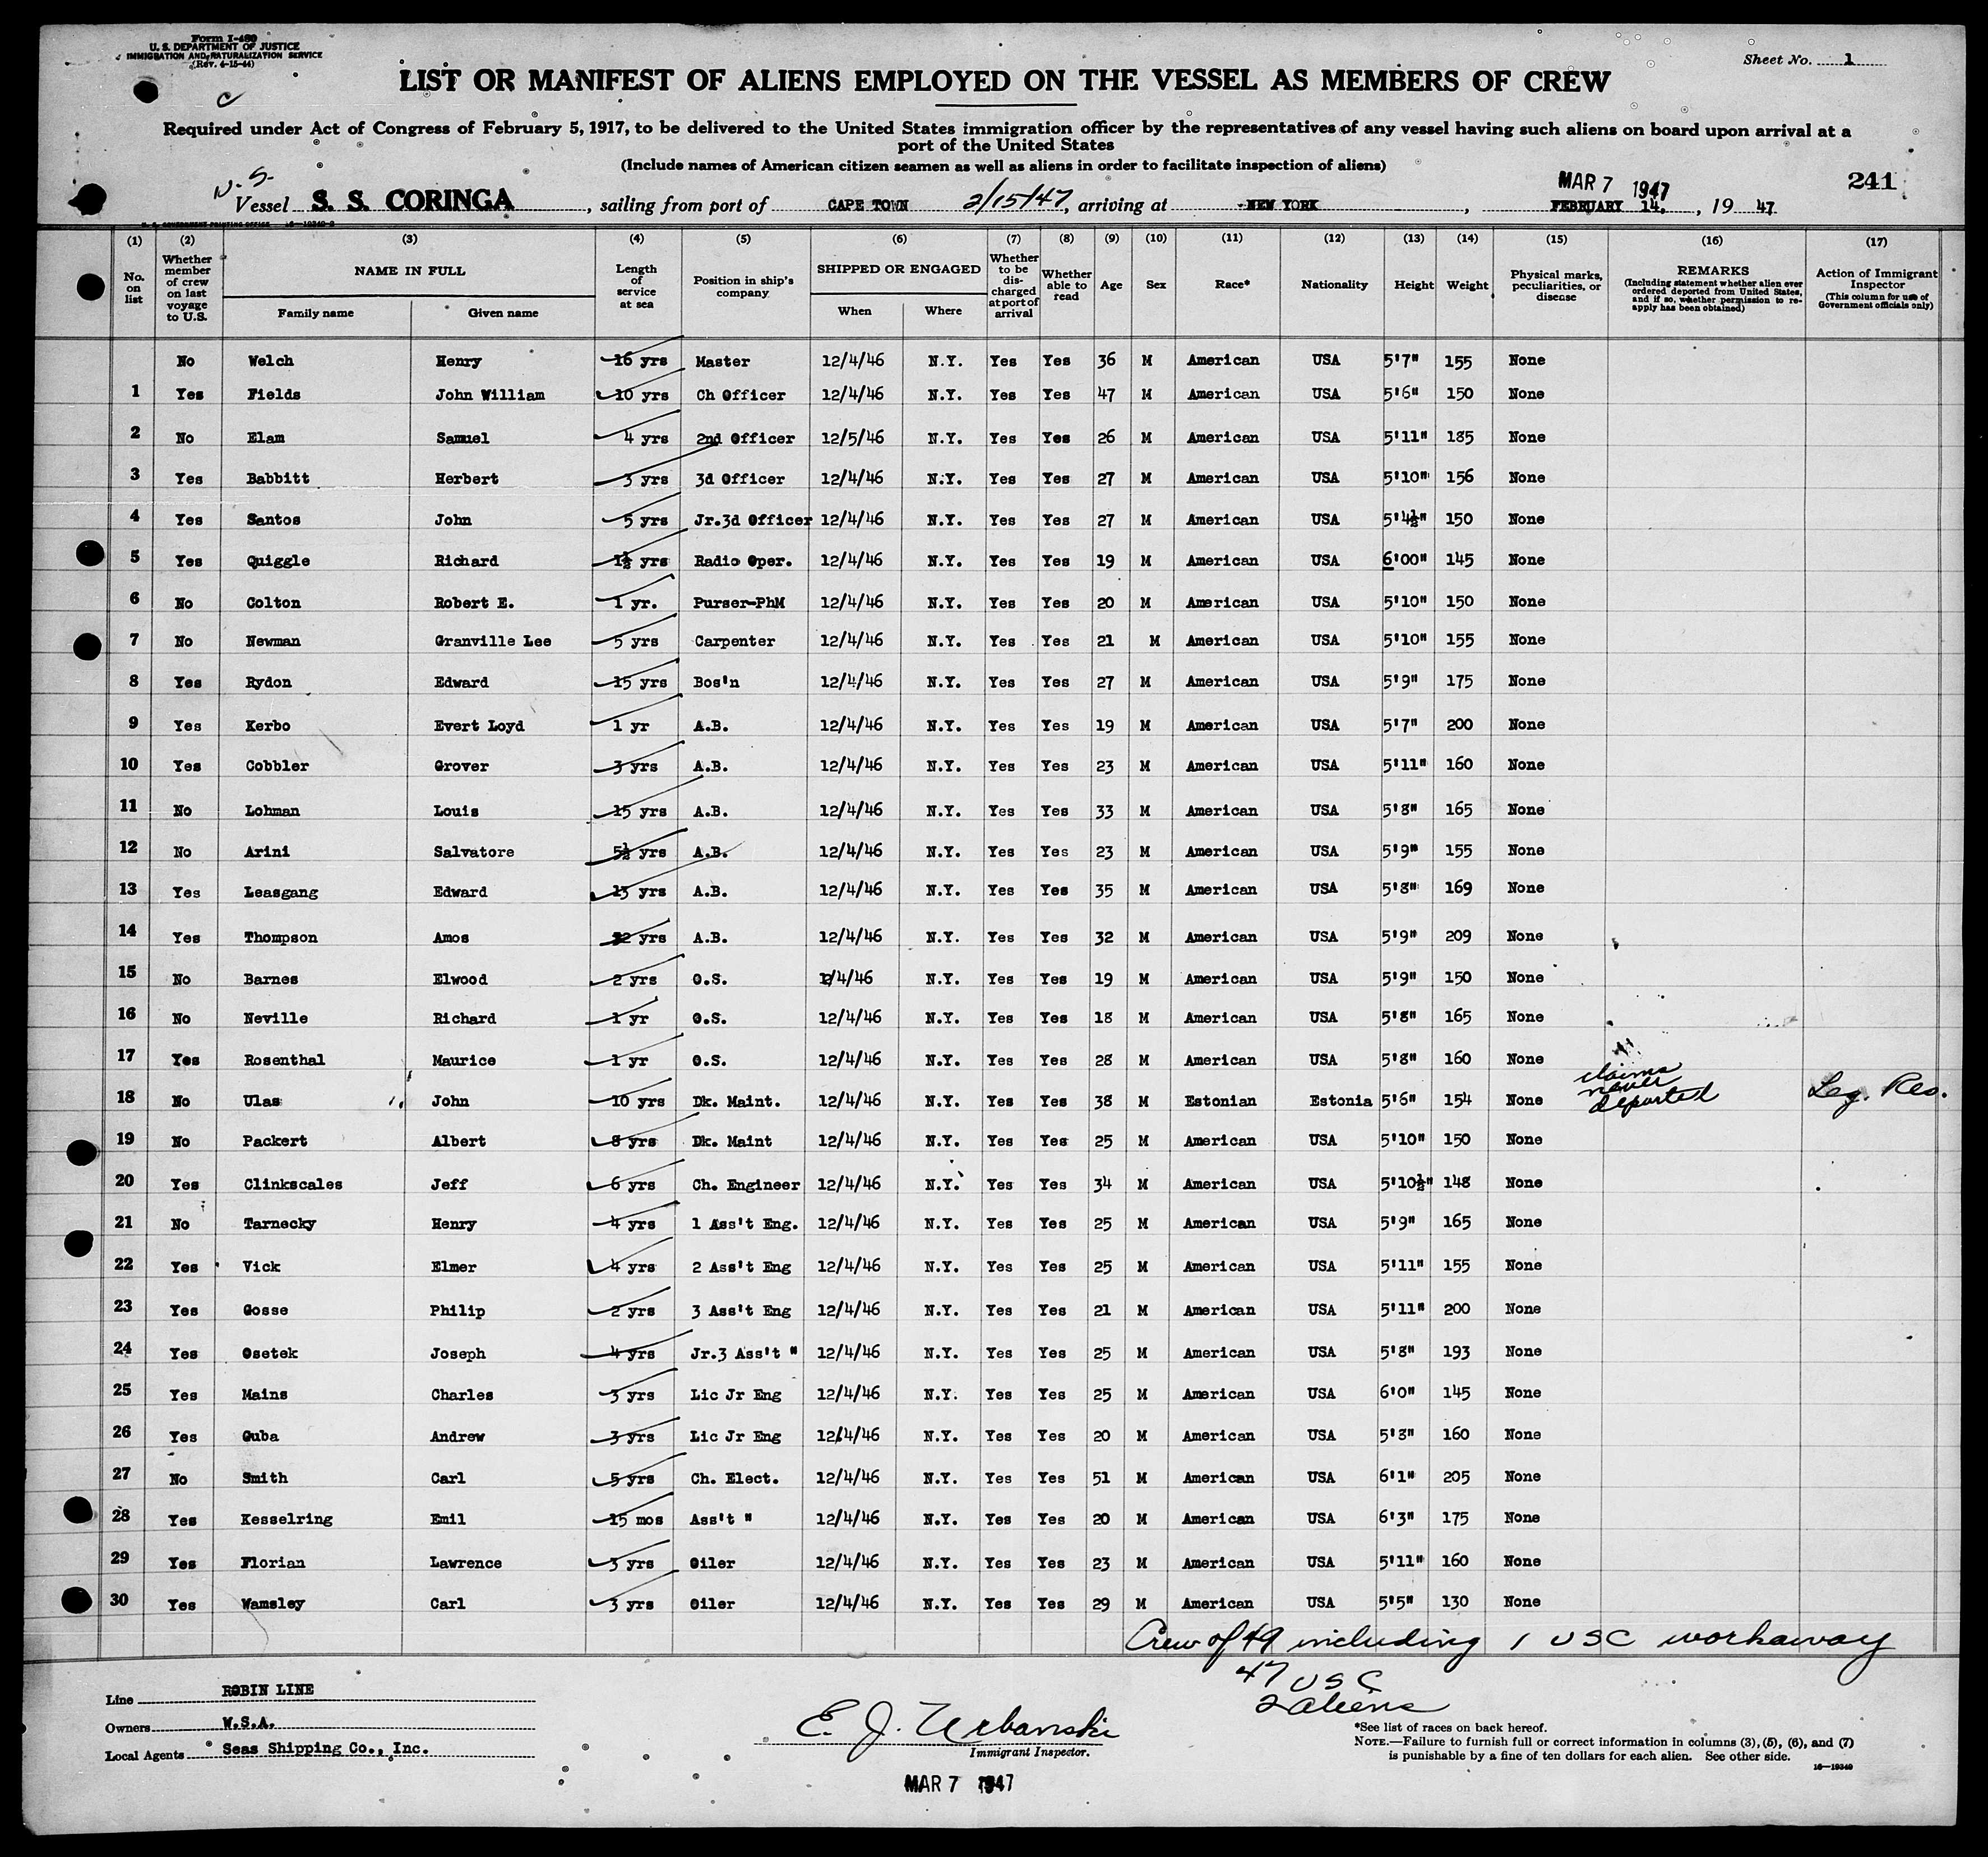 Form I-480
U. S. DEPARTMENT OF JUSTICE
IMMIGRATION AND NATURALIZATION SERVICE
(Rev. 4-15-44)
Sheet No. 1
LIST OR MANIFEST OF ALIENS EMPLOYED ON THE VESSEL AS MEMBERS OF CREW
Required under Act of Congress of February 5, 1917, to be delivered to the United States immigration officer by the representatives of any vessel having such aliens on board upon arrival at a
port of the United States
(Include names of American citizen seamen as well as aliens in order to facilitate inspection of aliens)
MAR 7 1947
241
Vessel S. S. CORINGA, sailing from port of CAPE TOWN 2/15/47, arriving at NEW YORK, FEBRUARY 14, 19 47
(1) (2) (3) (4) (5) (6) (7) (8) (9) (10) (11) (12) (13) (14) (15) (16) (17)
No. on list
Whether member of crew on last voyage to U.S.
NAME IN FULL
Family name Given name
Length of service at sea
Position in ship's company
SHIPPED OR ENGAGED
When Where
Whether to be discharged at port of arrival
Whether able to read
Age Sex Race* Nationality Height Weight
Physical marks, peculiarities, or disease
REMARKS
(Including statement whether alien ever ordered deported from United States, and if so, whether permission to reapply has been obtained)
Action of Immigrant Inspector
(This column for use of Government officials only)
No Welch Henry 16 yrs Master 12/4/46 N.Y. Yes Yes 36 M American USA 5'7" 155 None
1 Yes Fields John William 10 yrs Ch Officer 12/4/46 N.Y. Yes Yes 47 M American USA 5'6" 150 None
2 No Elam Samuel 4 yrs 2nd Officer 12/5/46 N.Y. Yes Yes 26 M American USA 5'11" 185 None
3 Yes Babbitt Herbert 3 yrs 3d Officer 12/4/46 N.Y. Yes Yes 27 M American USA 5'10" 156 None
4 Yes Santos John 5 yrs Jr.3d Officer 12/4/46 N.Y. Yes Yes 27 M American USA 5'4½" 150 None
5 Yes Quiggle Richard 1½ yrs Radio Oper. 12/4/46 N.Y. Yes Yes 19 M American USA 6'00" 145 None
6 No Colton Robert E. 1 yr. Purser-PhM 12/4/46 N.Y. Yes Yes 20 M American USA 5'10" 150 None
7 No Newman Granville Lee 5 yrs Carpenter 12/4/46 N.Y. Yes Yes 21 M American USA 5'10" 155 None
8 Yes Rydon Edward 15 yrs Bos'n 12/4/46 N.Y. Yes Yes 27 M American USA 5'9" 175 None
9 Yes Kerbo Evert Loyd 1 yr A.B. 12/4/46 N.Y. Yes Yes 19 M American USA 5'7" 200 None
10 Yes Cobbler Grover 3 yrs A.B. 12/4/46 N.Y. Yes Yes 23 M American USA 5'11" 160 None
11 No Lohman Louis 15 yrs A.B. 12/4/46 N.Y. Yes Yes 33 M American USA 5'8" 165 None
12 No Arini Salvatore 5½ yrs A.B. 12/4/46 N.Y. Yes Yes 23 M American USA 5'9" 155 None
13 Yes Leasgang Edward 13 yrs A.B. 12/4/46 N.Y. Yes Yes 35 M American USA 5'8" 169 None
14 Yes Thompson Amos yrs A.B. 12/4/46 N.Y. Yes Yes 32 M American USA 5'9" 209 None
15 No Barnes Elwood 2 yrs O.S. 12/4/46 N.Y. Yes Yes 19 M American USA 5'9" 150 None
16 No Neville Richard 1 yr O.S. 12/4/46 N.Y. Yes Yes 18 M American USA 5'8" 165 None
17 Yes Rosenthal Maurice 1 yr O.S. 12/4/46 N.Y. Yes Yes 28 M American USA 5'8" 160 None
18 No Ulas John 10 yrs Dk. Maint. 12/4/46 N.Y. Yes Yes 38 M Estonian Estonia 5'6" 154 None claims never deported Leg. Res.
19 No Packert Albert 8 yrs Dk. Maint 12/4/46 N.Y. Yes Yes 25 M American USA 5'10" 150 None
20 Yes Clinkscales Jeff 6 yrs Ch. Engineer 12/4/46 N.Y. Yes Yes 34 M American USA 5'10½" 148 None
21 No Tarnecky Henry 4 yrs 1 Ass't Eng. 12/4/46 N.Y. Yes Yes 25 M American USA 5'9" 165 None
22 Yes Vick Elmer 4 yrs 2 Ass't Eng 12/4/46 N.Y. Yes Yes 25 M American USA 5'11" 155 None
23 Yes Gosse Philip 2 yrs 3 Ass't Eng 12/4/46 N.Y. Yes Yes 21 M American USA 5'11" 200 None
24 Yes Osetek Joseph 4 yrs Jr.3 Ass't " 12/4/46 N.Y. Yes Yes 25 M American USA 5'8" 193 None
25 Yes Mains Charles 3 yrs Lic Jr Eng 12/4/46 N.Y. Yes Yes 25 M American USA 6'0" 145 None
26 Yes Guba Andrew 3 yrs Lic Jr Eng 12/4/46 N.Y. Yes Yes 20 M American USA 5'8" 160 None
27 No Smith Carl 5 yrs Ch. Elect. 12/4/46 N.Y. Yes Yes 51 M American USA 6'1" 205 None
28 Yes Kesselring Emil 15 mos Ass't " 12/4/46 N.Y. Yes Yes 20 M American USA 6'3" 175 None
29 Yes Florian Lawrence 3 yrs Oiler 12/4/46 N.Y. Yes Yes 23 M American USA 5'11" 160 None
30 Yes Wamsley Carl 3 yrs Oiler 12/4/46 N.Y. Yes Yes 29 M American USA 5'5" 130 None
Crew of 49 including 1 USC workaway
47 USC
2 aliens
Line ROBIN LINE
Owners W.S.A.
Local Agents Seas Shipping Co., Inc.
E. J. Urbanski
Immigrant Inspector.
MAR 7 1947
*See list of races on back hereof.
NOTE.—Failure to furnish full or correct information in columns (3), (5), (6), and (7)
is punishable by a fine of ten dollars for each alien. See other side.